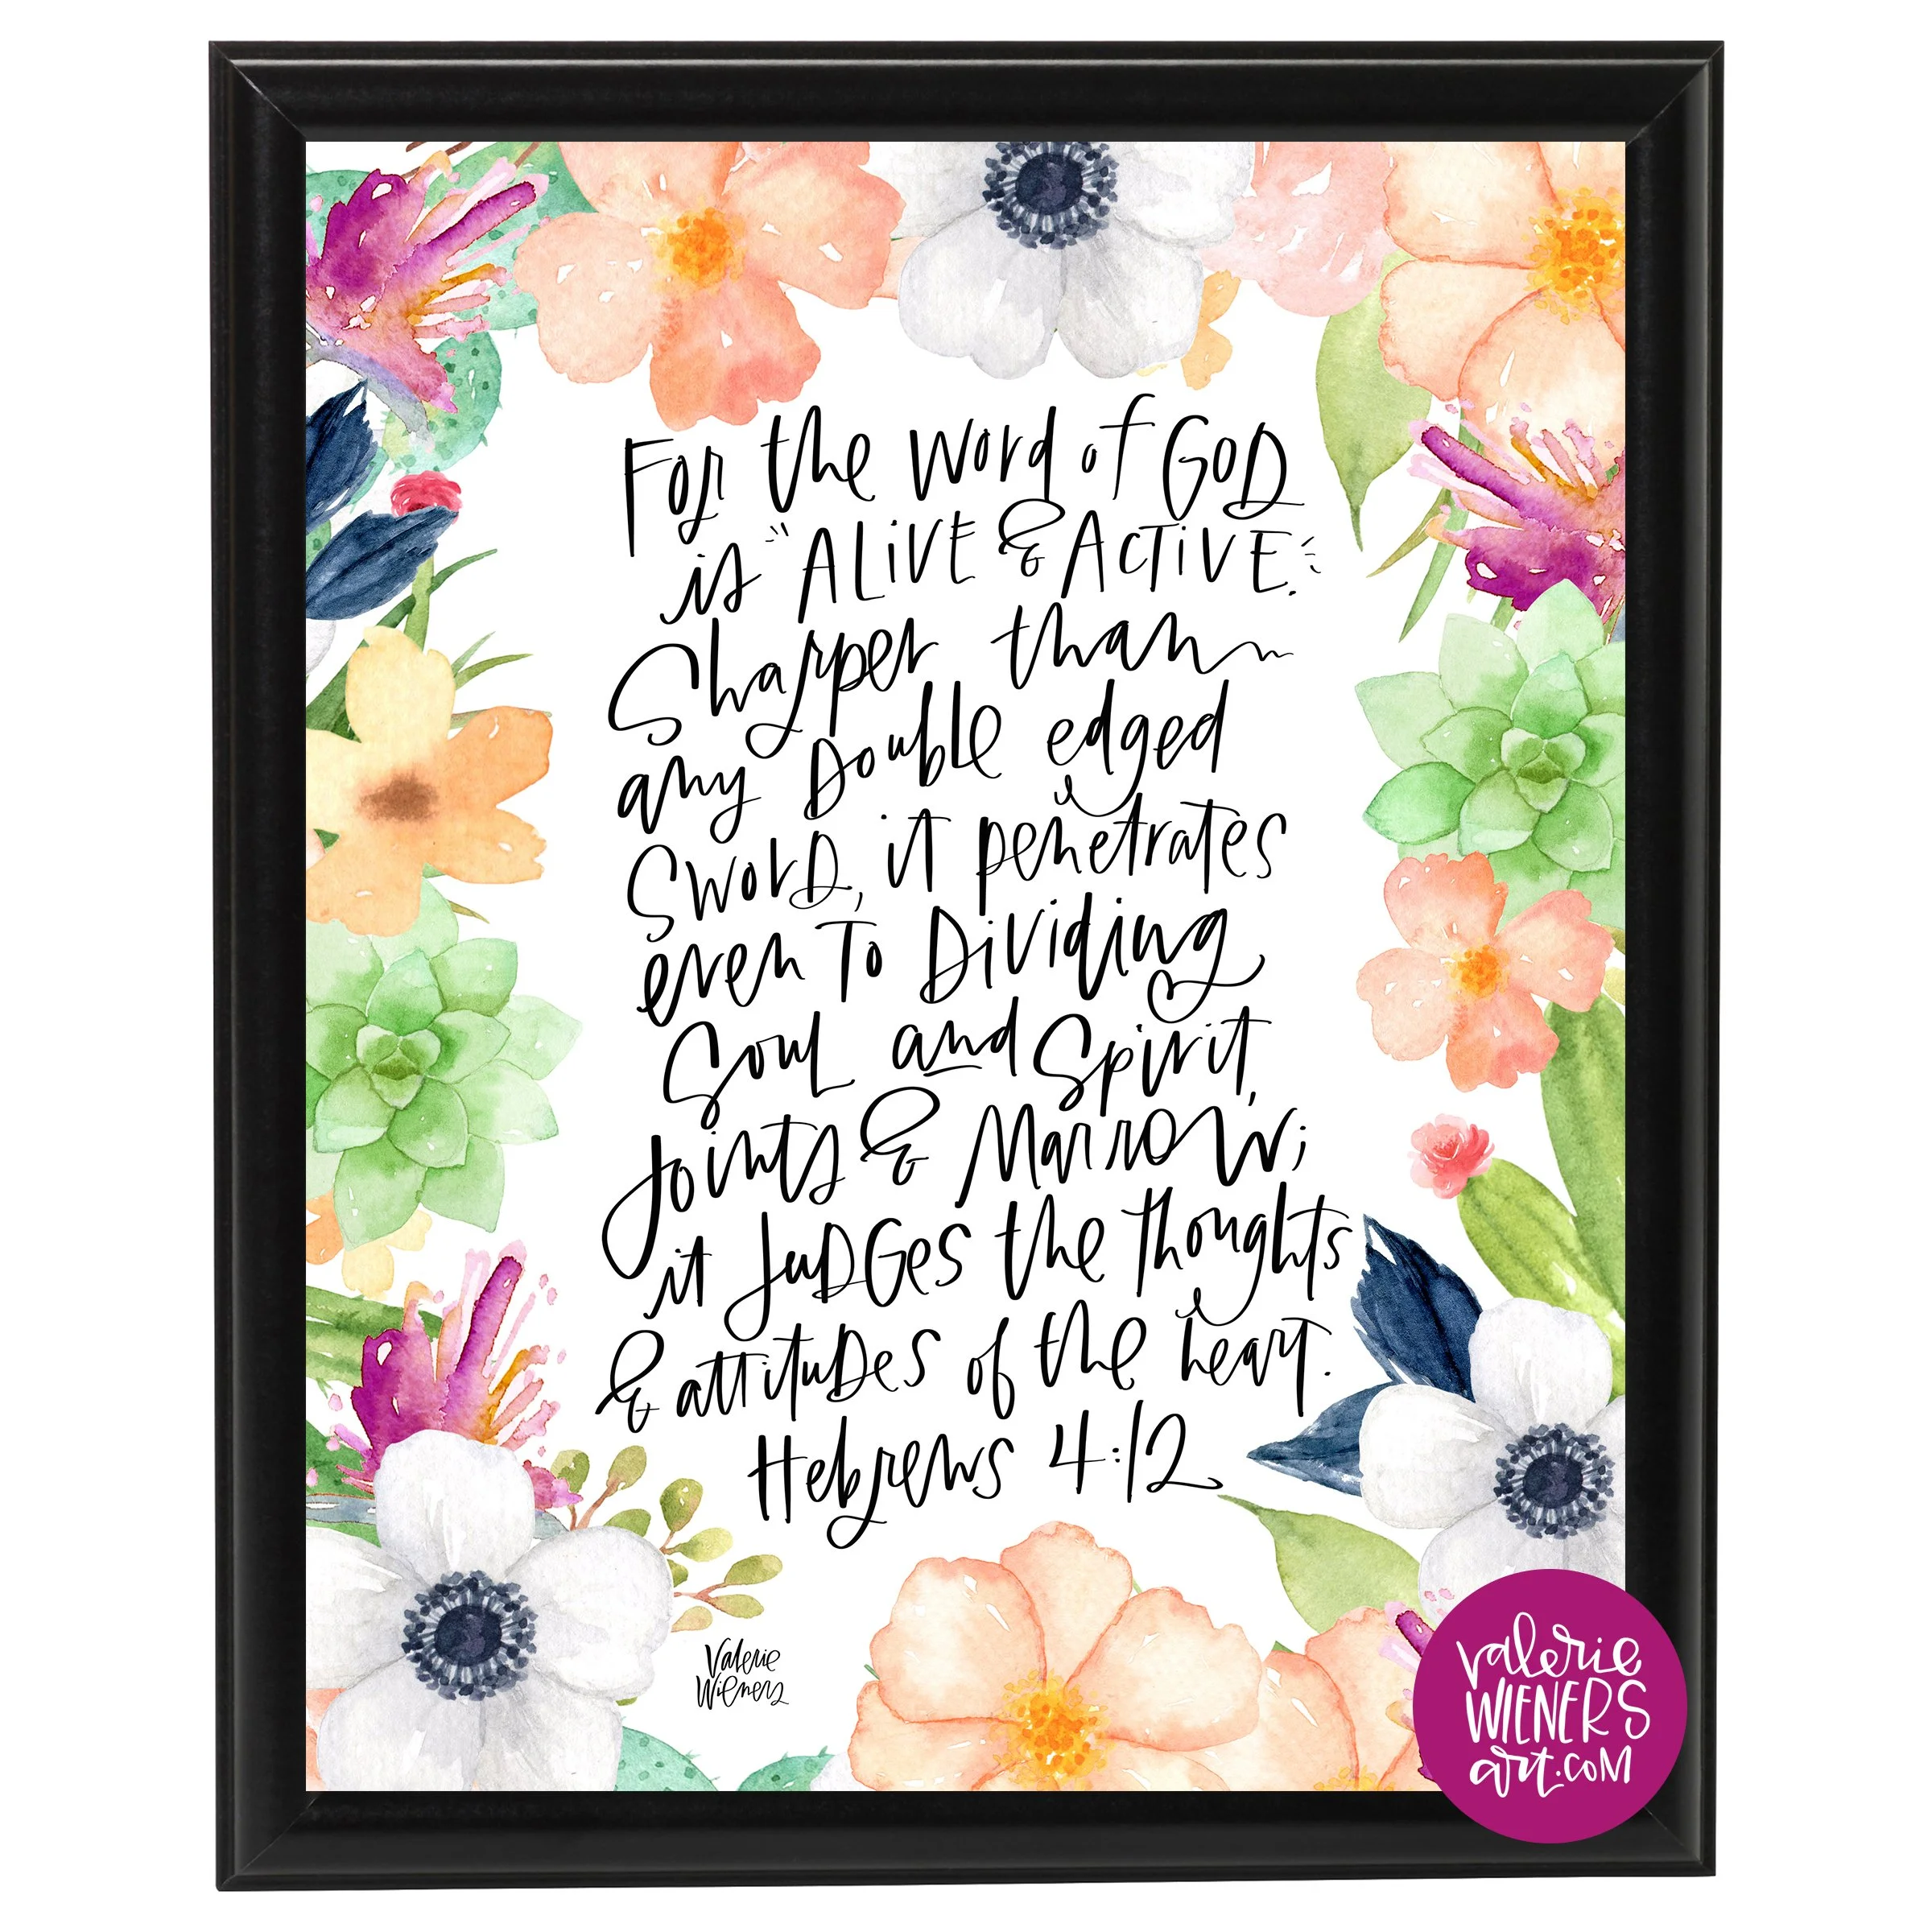 For the word of GOD
is ALiVE & ACTiVE.
Sharper than
any Double edged
SworD, it penetrates
even To Dividing
Soul and Spirit,
Joints & Marrow;
it JuDGes the Thoughts
& attituDes of the heart.
Hebrews 4:12
Valerie
Wieners
valerie
WIENERS
art.com